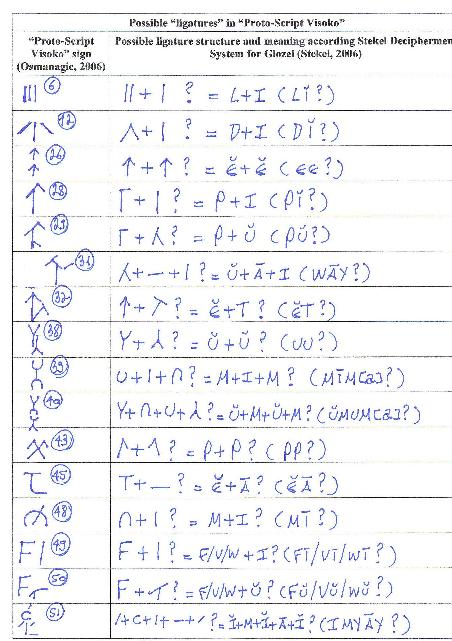 Possible "ligatures" in "Proto-Script Visoko"
"Proto-Script Visoko" sign (Osmanagic, 2006)
Possible ligature structure and meaning according Stekel Decipherment System for Glozel (Stekel, 2006)
6 || + | ? = L+I (LĬ?)
12 Λ + | ? = D+I (DĬ?)
26 ↑ + ↑ ? = ĕ+ĕ (ee?)
28 Γ + | ? = P+I (PĬ?)
29 Γ + ⅄ ? = P+Ŭ (PŬ?)
31 ⅄ + — + | ? = Ŭ+Ā+I (WĀY?)
32 ↑ + ? = ĕ+T? (ĕT?)
38 Y + ⅄ ? = Ŭ+Ŭ? (UU?)
39 U + | + ∩ ? = M+I+M? (MĪM[a]?)
40 Y+∩+U+⅄? = Ŭ+M+Ŭ+M? (ŬMUM[a]?)
43 Λ + Λ ? = P+P? (PP?)
45 T + — ? = ĕ+Ā? (ĕĀ?)
48 ∩ + | ? = M+I? (MĪ?)
49 F| F + | ? = F/V/W + I? (FĪ/VĪ/WĪ?)
50 F + ? = F/V/W + Ŭ? (FŬ/VŬ/WŬ?)
51 /+C+I+—+/? = Ĭ+M+Ĭ+Ā+Ĭ? (IMYĀY?)